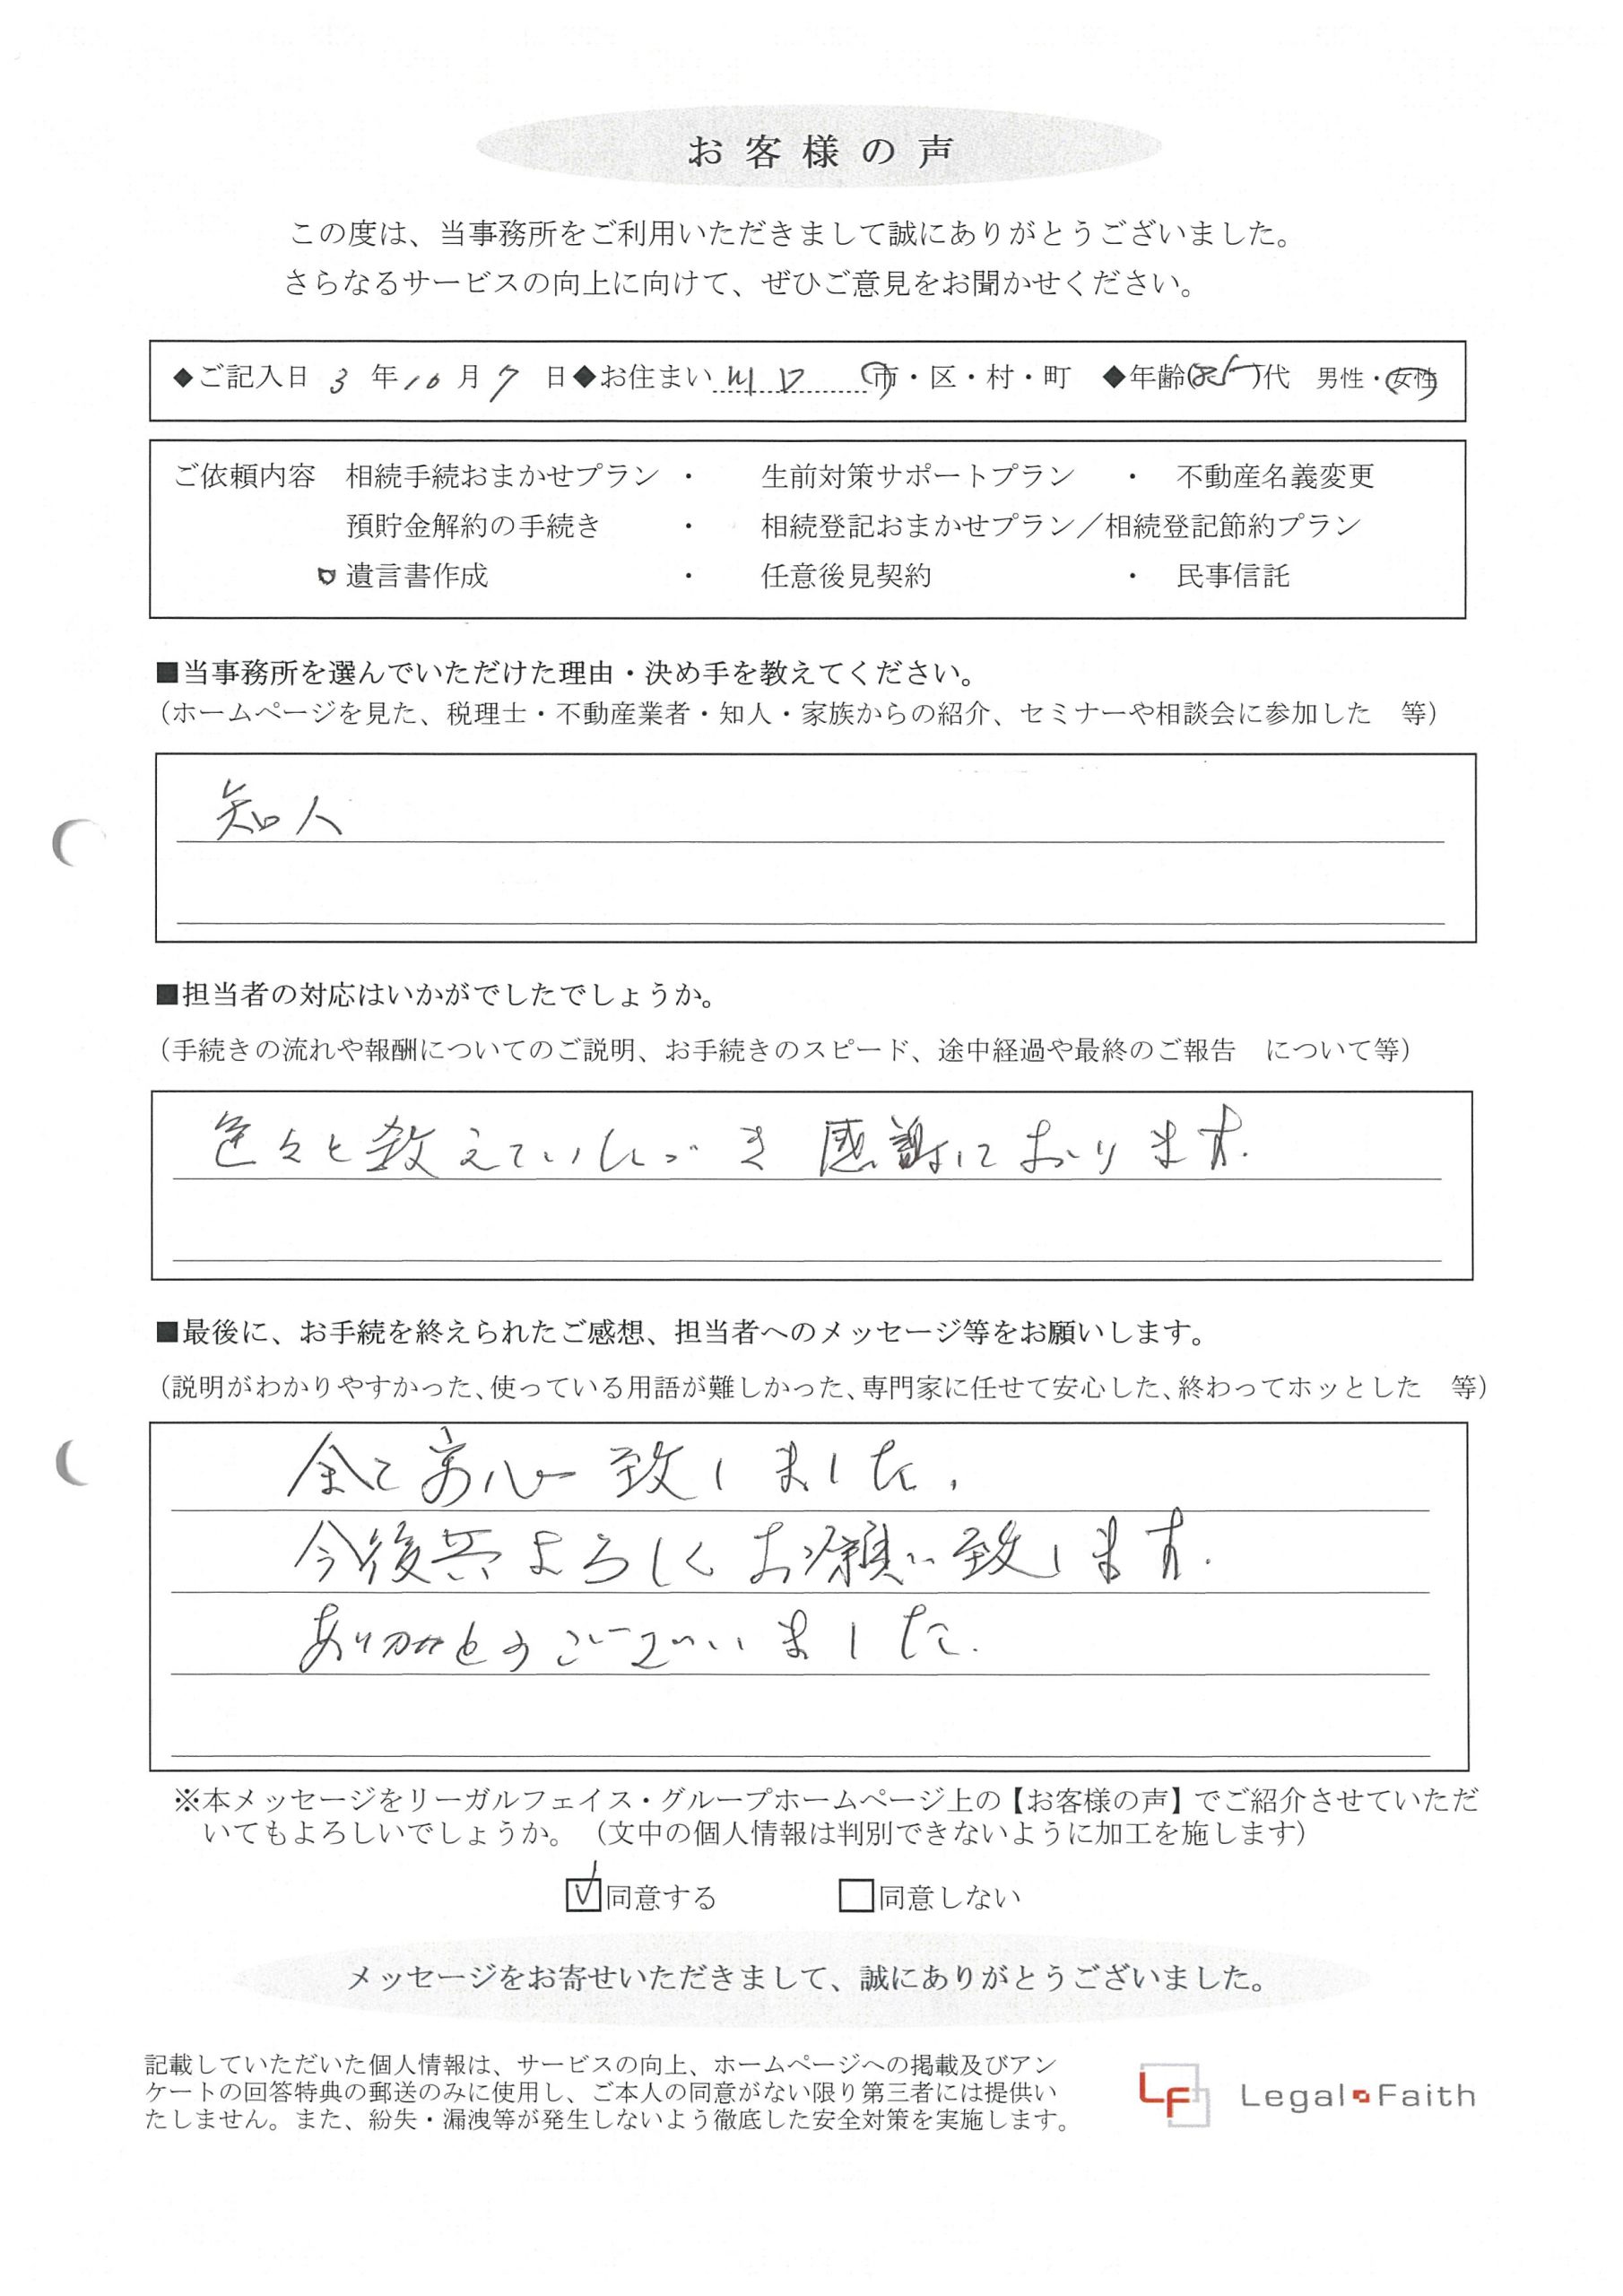 お客様の声
この度は、当事務所をご利用いただきまして誠にありがとうございました。
さらなるサービスの向上に向けて、ぜひご意見をお聞かせください。
◆ご記入日 3 年 10 月 7 日◆お住まい 川口 市・区・村・町 ◆年齢(85)代 男性・女性
ご依頼内容 相続手続おまかせプラン ・ 生前対策サポートプラン ・ 不動産名義変更
預貯金解約の手続き ・ 相続登記おまかせプラン／相続登記節約プラン
遺言書作成 ・ 任意後見契約 ・ 民事信託
■当事務所を選んでいただけた理由・決め手を教えてください。
（ホームページを見た、税理士・不動産業者・知人・家族からの紹介、セミナーや相談会に参加した 等）
知人
■担当者の対応はいかがでしたでしょうか。
（手続きの流れや報酬についてのご説明、お手続きのスピード、途中経過や最終のご報告 について等）
色々と教えていただき 感謝しております.
■最後に、お手続を終えられたご感想、担当者へのメッセージ等をお願いします。
（説明がわかりやすかった、使っている用語が難しかった、専門家に任せて安心した、終わってホッとした 等）
全て安心致しました.
今後共よろしくお願い致します.
ありがとうございました.
※本メッセージをリーガルフェイス・グループホームページ上の【お客様の声】でご紹介させていただ
いてもよろしいでしょうか。（文中の個人情報は判別できないように加工を施します）
☑同意する □同意しない
メッセージをお寄せいただきまして、誠にありがとうございました。
記載していただいた個人情報は、サービスの向上、ホームページへの掲載及びアン
ケートの回答特典の郵送のみに使用し、ご本人の同意がない限り第三者には提供い
たしません。また、紛失・漏洩等が発生しないよう徹底した安全対策を実施します。
LF Legal Faith